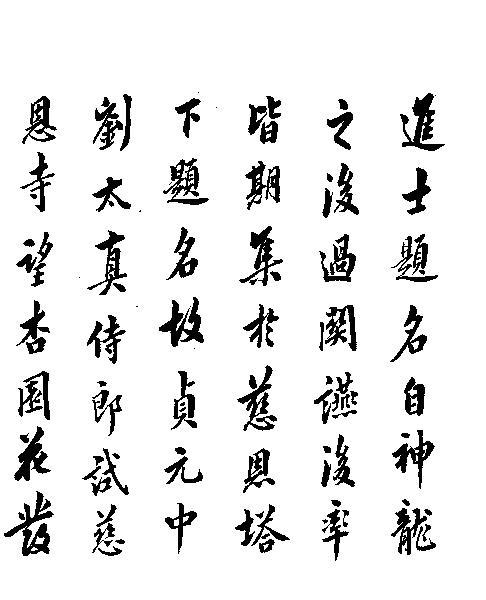 進士題名自神龍
之後過關讌後率
皆期集於慈恩塔
下題名故貞元中
劉太真侍郎試慈
恩寺望杏園花發